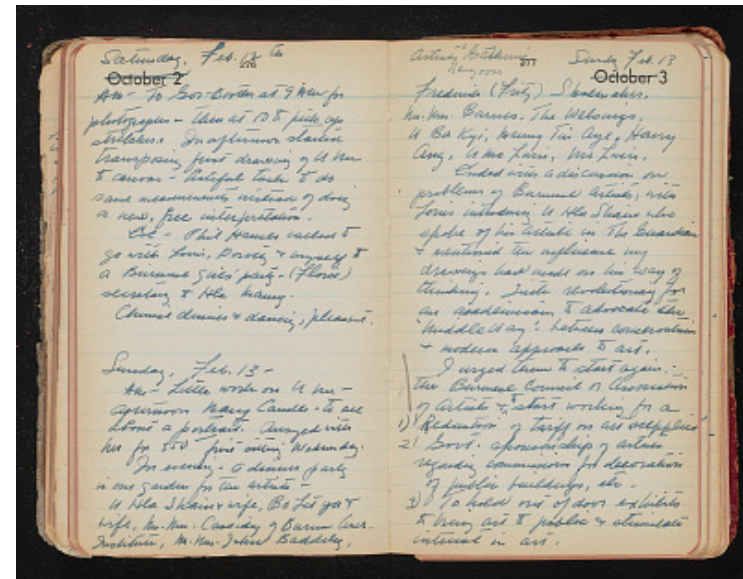 Saturday, Feb. 12th
276
October 2
Am - To Gov. at 9 Am for
photographs - then at 10 to pick up
stretchers. In afternoon started
transposing first drawing of U Nu
to canvas - hateful task to do
same measurements instead of doing
a new, free interpretation.
Eve - Phil called to
go with Louis, Dorothy & myself to
a Burmese girls' party - (Flores)
secretary to Hla Maung.
Chinese dinner & dancing, pleasant.
Sunday, Feb. 13 -
Am - Little work on U Nu -
afternoon Mary to see
about a portrait. Arranged with
her for 550 first sitting Wednesday.
In evening - to dinner party
in our garden for the artists -
U Hla Shain & wife, Bo Let ya &
wife, Mr. Mrs. Cassidy of Burma Amer.
Institute, Mr. Mrs. John Baddeley,
Artists' Gathering
Rangoon
277
Sunday Feb. 13
October 3
Frederick (Fritz)
Mr. Mrs. Barnes, The
U Ba Kyi, Aye, Harry
Ang, U
Ended with a discussion on
problems of Burmese Artists, with
Louis introducing U Hla Shain who
spoke of his article in The Guardian
& mentioned the influence my
drawings had made on his way of
thinking. Quite revolutionary for
an academician to advocate the
"Middle Way" between conservatism
& modern approaches to art.
I urged them to start again -
the Burmese Council or Association
of Artists & to start working for a
1) Reduction of tariff on art supplies
2) Govt. sponsorship of artists
regarding commissions for decoration
of public buildings, etc.
3) To hold out of doors exhibits
to bring art to public & stimulate
interest in art.